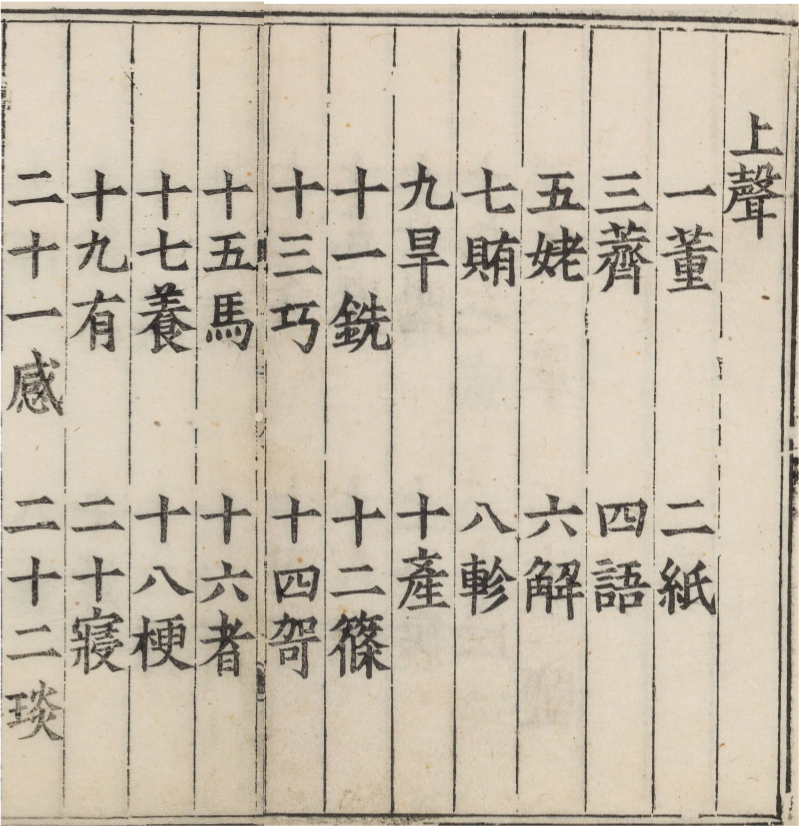 上聲
一董 二紙
三薺 四語
五姥 六解
七賄 八軫
九旱 十產
十一銑 十二篠
十三巧 十四哿
十五馬 十六者
十七養 十八梗
十九有 二十寢
二十一感 二十二琰